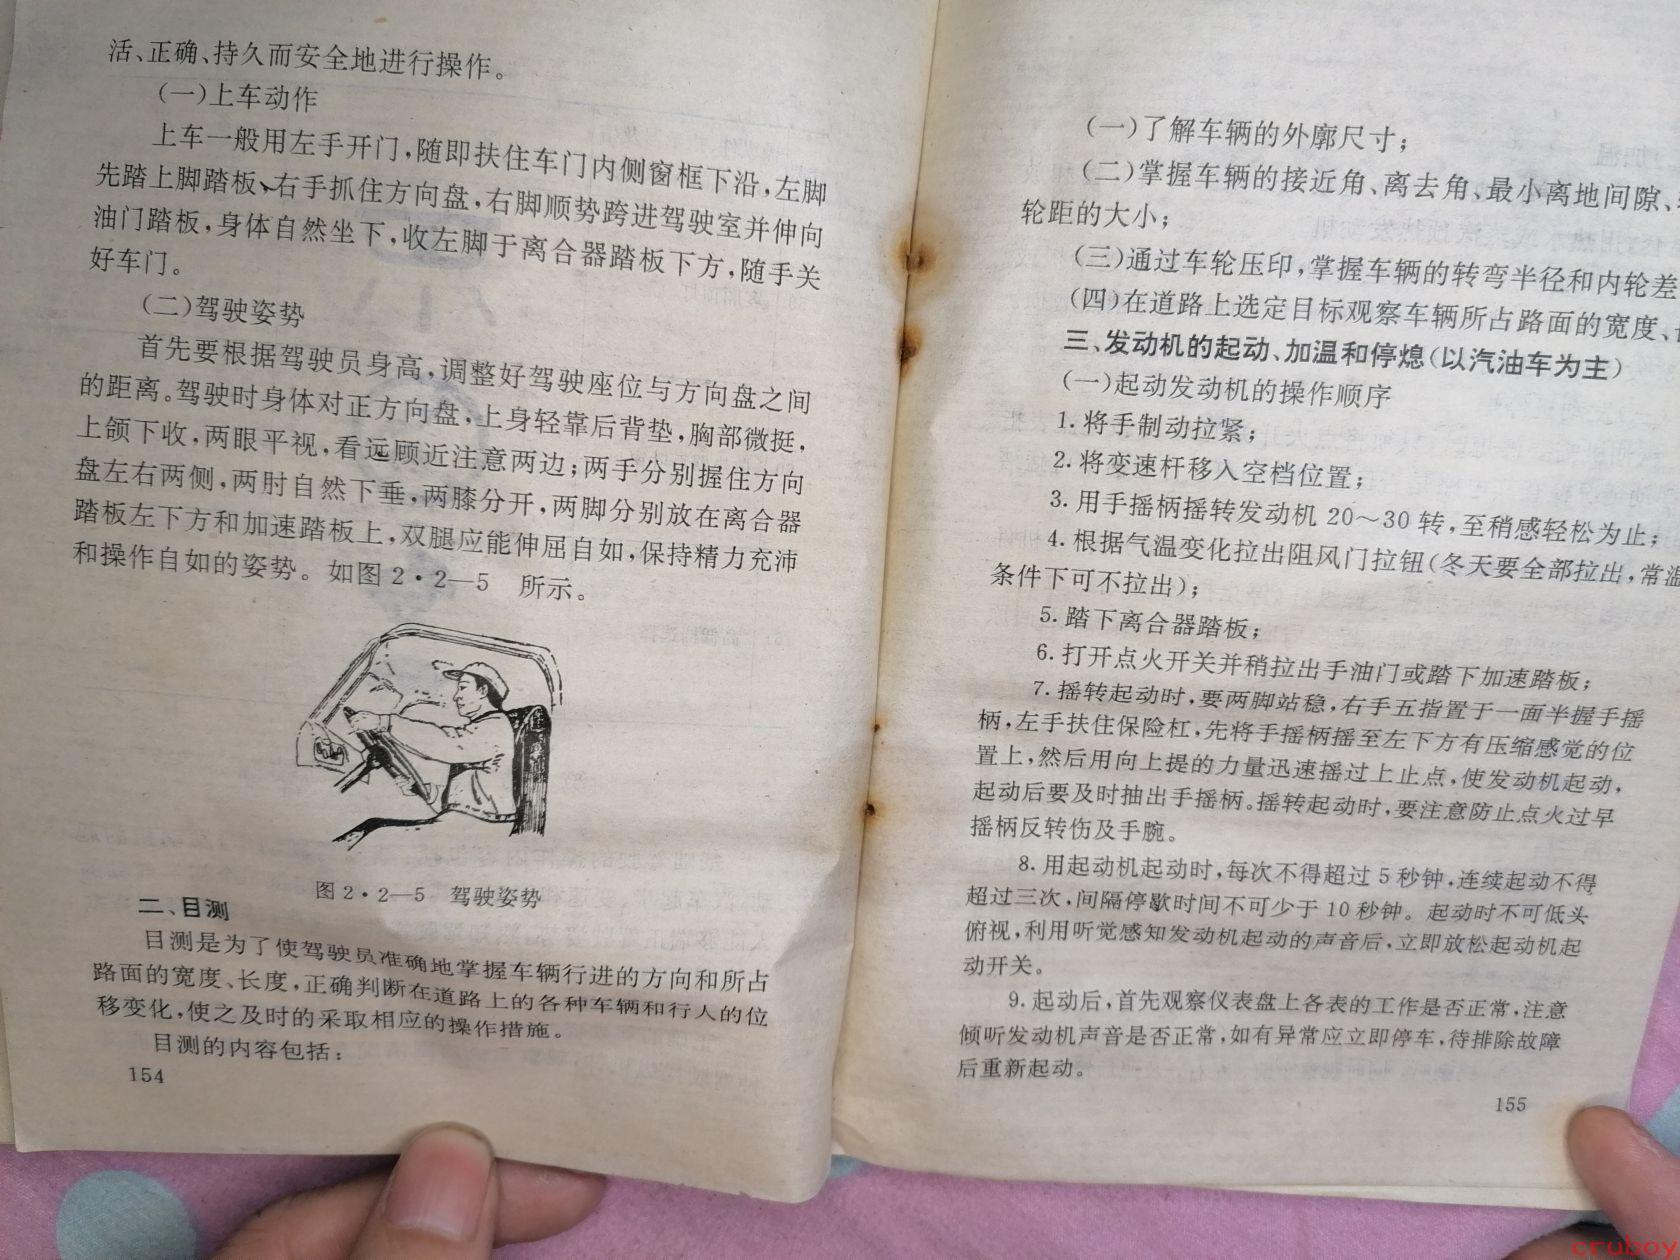 活、正确、持久而安全地进行操作。
(一)上车动作
上车一般用左手开门，随即扶住车门内侧窗框下沿，左脚
先踏上脚踏板、右手抓住方向盘，右脚顺势跨进驾驶室并伸向
油门踏板，身体自然坐下，收左脚于离合器踏板下方，随手关
好车门。
(二)驾驶姿势
首先要根据驾驶员身高，调整好驾驶座位与方向盘之间
的距离。驾驶时身体对正方向盘，上身轻靠后背垫，胸部微挺，
上颌下收，两眼平视，看远顾近注意两边；两手分别握住方向
盘左右两侧，两肘自然下垂，两膝分开，两脚分别放在离合器
踏板左下方和加速踏板上，双腿应能伸屈自如，保持精力充沛
和操作自如的姿势。如图2·2—5 所示。
图2·2—5 驾驶姿势
二、目测
目测是为了使驾驶员准确地掌握车辆行进的方向和所占
路面的宽度、长度，正确判断在道路上的各种车辆和行人的位
移变化，使之及时的采取相应的操作措施。
目测的内容包括：
154
(一)了解车辆的外廓尺寸；
(二)掌握车辆的接近角、离去角、最小离地间隙、
轮距的大小；
(三)通过车轮压印，掌握车辆的转弯半径和内轮差
(四)在道路上选定目标观察车辆所占路面的宽度、
三、发动机的起动、加温和停熄(以汽油车为主)
(一)起动发动机的操作顺序
1.将手制动拉紧；
2.将变速杆移入空档位置；
3.用手摇柄摇转发动机20～30转，至稍感轻松为止；
4.根据气温变化拉出阻风门拉钮(冬天要全部拉出，常温
条件下可不拉出)；
5.踏下离合器踏板；
6.打开点火开关并稍拉出手油门或踏下加速踏板；
7.摇转起动时，要两脚站稳，右手五指置于一面半握手摇
柄，左手扶住保险杠，先将手摇柄摇至左下方有压缩感觉的位
置上，然后用向上提的力量迅速摇过上止点，使发动机起动，
起动后要及时抽出手摇柄。摇转起动时，要注意防止点火过早
摇柄反转伤及手腕。
8.用起动机起动时，每次不得超过5秒钟，连续起动不得
超过三次，间隔停歇时间不可少于10秒钟。起动时不可低头
俯视，利用听觉感知发动机起动的声音后，立即放松起动机起
动开关。
9.起动后，首先观察仪表盘上各表的工作是否正常，注意
倾听发动机声音是否正常，如有异常应立即停车，待排除故障
后重新起动。
155
cruboy